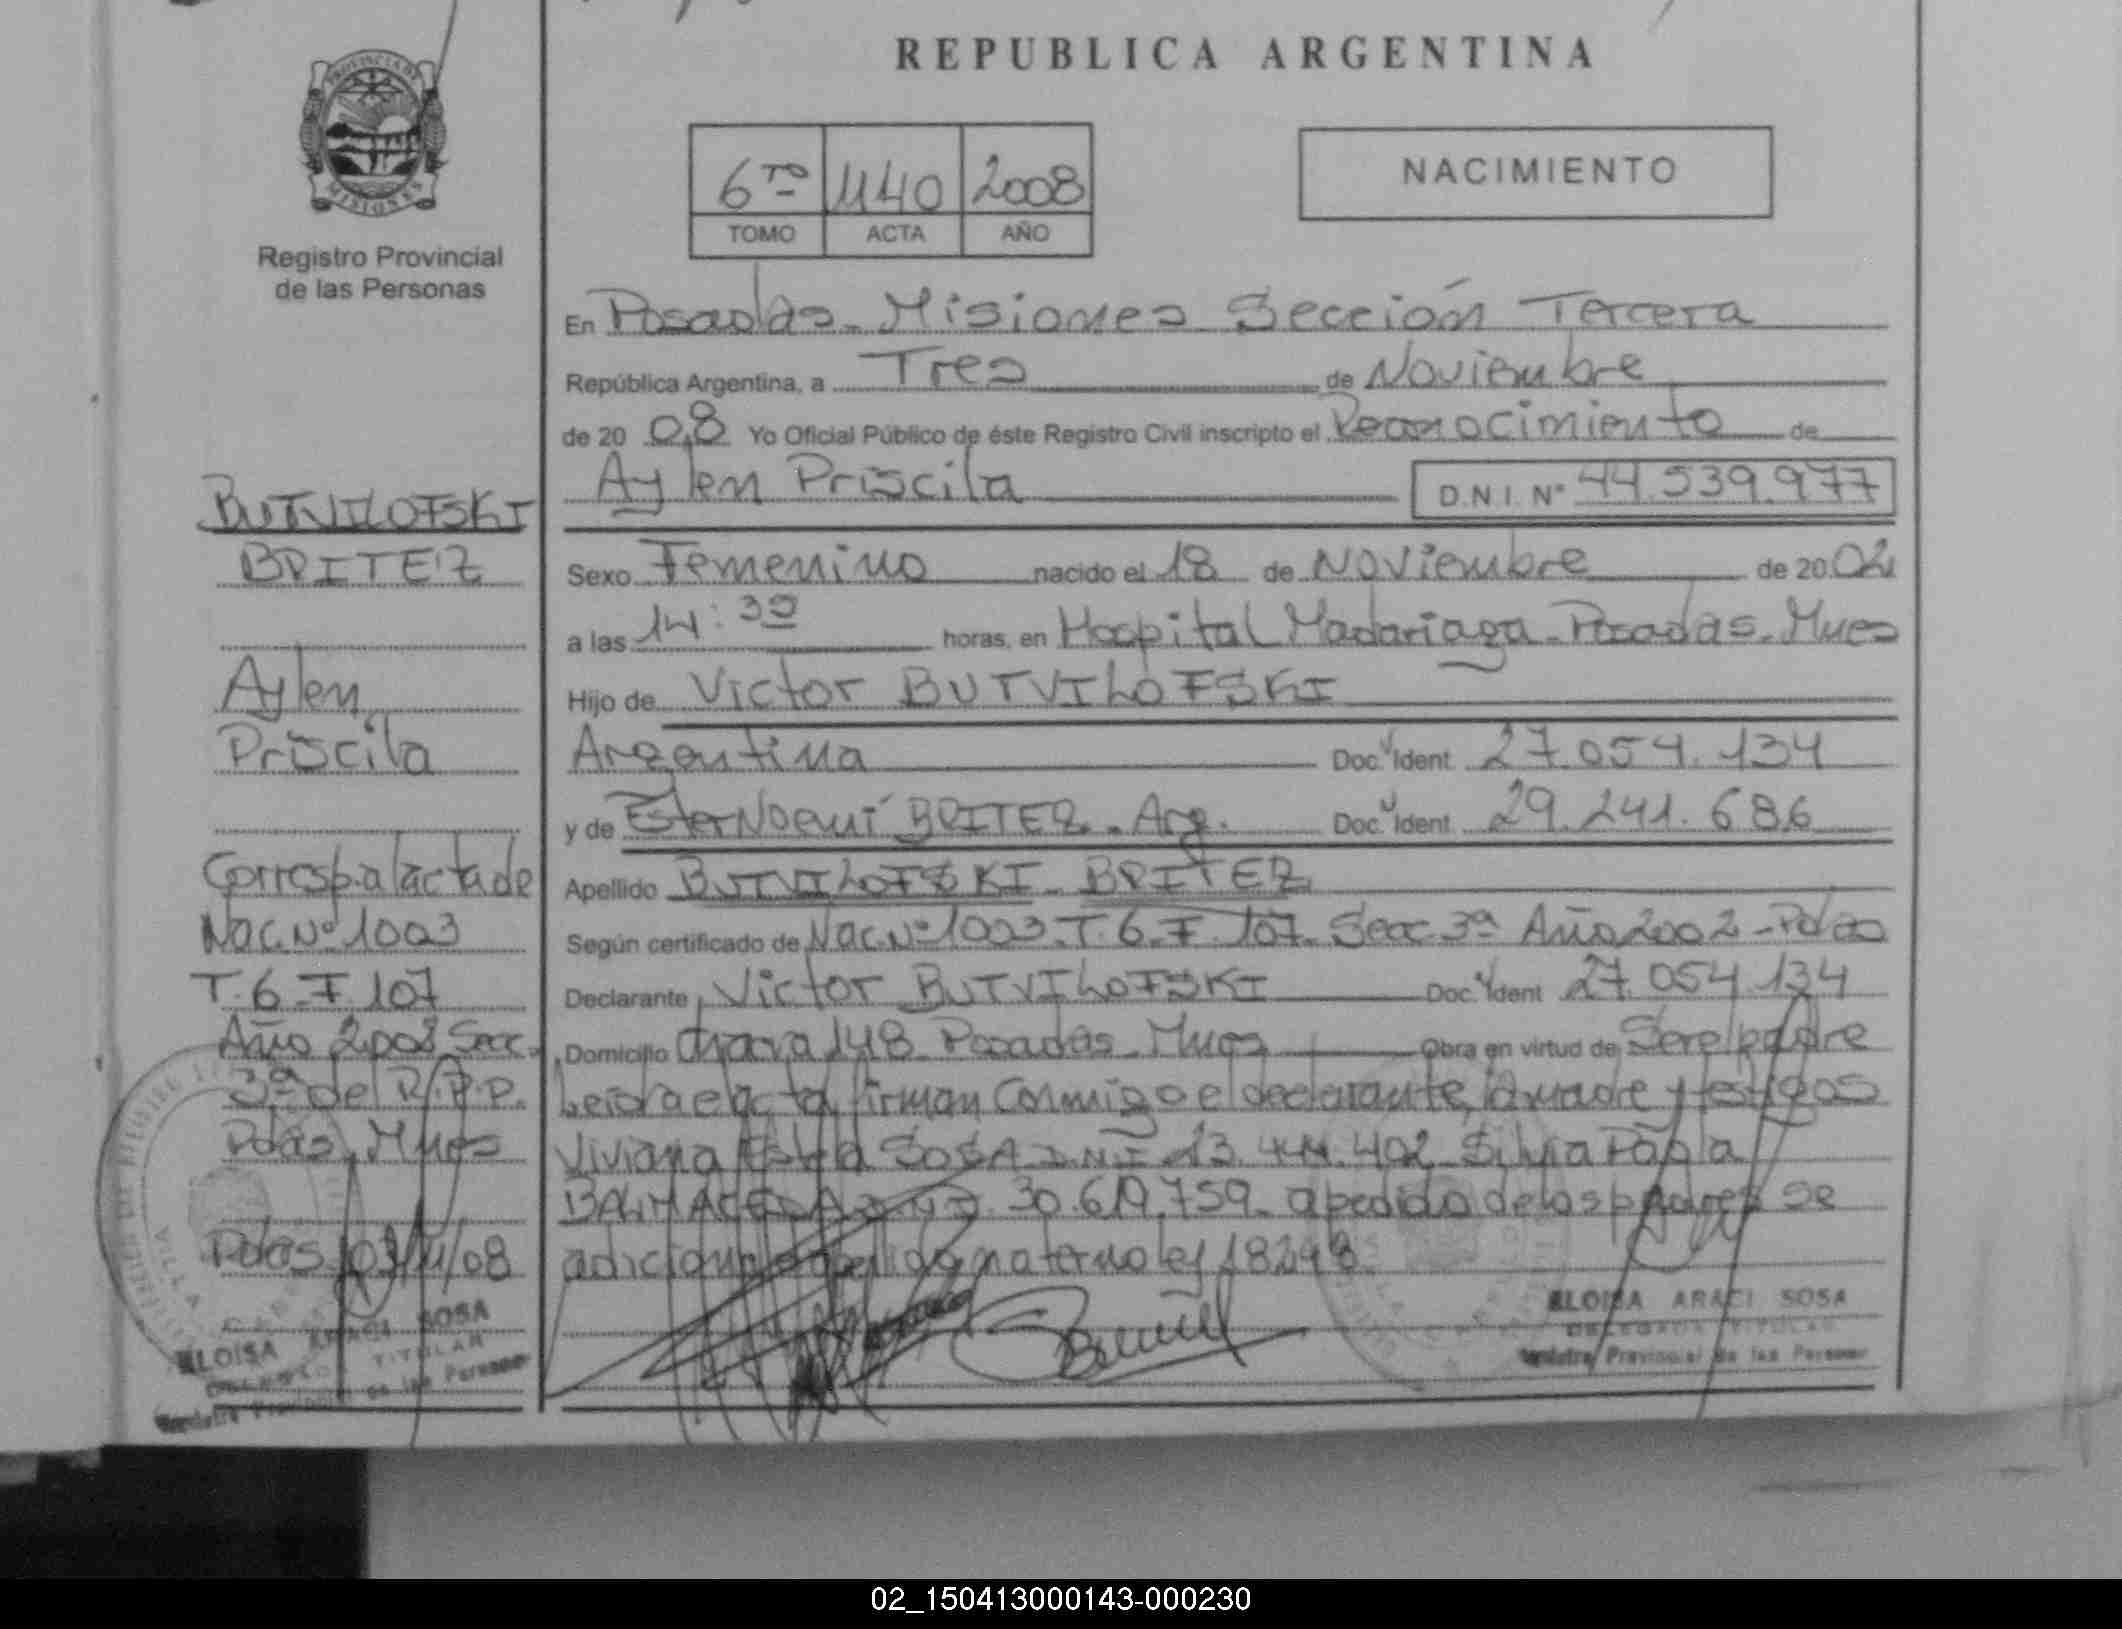 REPUBLICA ARGENTINA
PROVINCIA DE
MISIONES
Registro Provincial
de las Personas
6to 1140 2008
TOMO ACTA AÑO
NACIMIENTO
En Posadas - Misiones Sección Tercera
República Argentina, a Tres de Noviembre
de 20 08 Yo Oficial Público de éste Registro Civil inscripto el Reconocimiento de
Aylen Priscila D.N.I. Nº 44.539.977
Sexo Femenino nacido el 18 de Noviembre de 20 02
a las 14:30 horas, en Hospital Madariaga - Posadas - Mnes
Hijo de Victor BUTVILOFSKI
Argentina Doc. Ident 27.054.134
y de Ester Noemí BRITEZ - Arg. Doc. Ident 29.241.686
Apellido BUTVILOFSKI - BRITEZ
Según certificado de Nac. Nº 1003 - T. 6 - F. 107 - Secc 3ª Año 2002 - Pdas
Declarante Victor BUTVILOFSKI Doc. Ident 27.054.134
Domicilio Chacra 148 Posadas - Mnes Obra en virtud de Ser el padre
Leida el acta firman conmigo el declarante, la madre y testigos
Viviana SOSA D.N.I 13.444.402 Silvia Paola
BALMACEDA D.N.I. 30.619.759 - a pedido de los padres se
adiciona el apellido materno ley 18248
BUTVILOFSKI
BRITEZ
Aylen
Priscila
Corresp. al acta de
Nac. Nº 1003
T. 6 - F. 107
Año 2002 Secc.
3ª del R.P.P.
Pdas, Mnes
Pdas 03/11/08
ELOISA ARACI SOSA
DELEGADA TITULAR
Registro Provincial de las Personas
ELOISA ARACI SOSA
DELEGADA TITULAR
Registro Provincial de las Personas
02_150413000143-000230